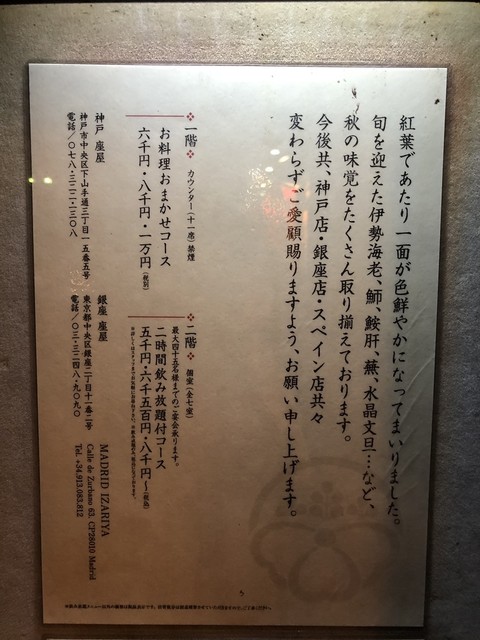 紅葉であたり一面が色鮮やかになってまいりました。
旬を迎えた伊勢海老、鰤、鮟肝、蕪、水晶文旦…など、
秋の味覚をたくさん取り揃えております。
今後共、神戸店・銀座店・スペイン店共々
変わらずご愛顧賜りますよう、お願い申し上げます。
一階 カウンター(十一席)禁煙
お料理おまかせコース
六千円・八千円・一万円(税別)
二階 個室(全七室)
最大四十五名様までのご宴会承ります。
二時間飲み放題付コース
五千円・六千五百円・八千円〜(税込)
神戸 座屋
神戸市中央区下山手通三丁目一五番五号
電話/〇七八・三二二・一三〇八
銀座 座屋
東京都中央区銀座二丁目十一番二号
電話/〇三・三二四八・九〇九〇
MADRID IZARIYA
Calle de Zurbano 63, CP28010 Madrid
Tel. +34.913.083.812